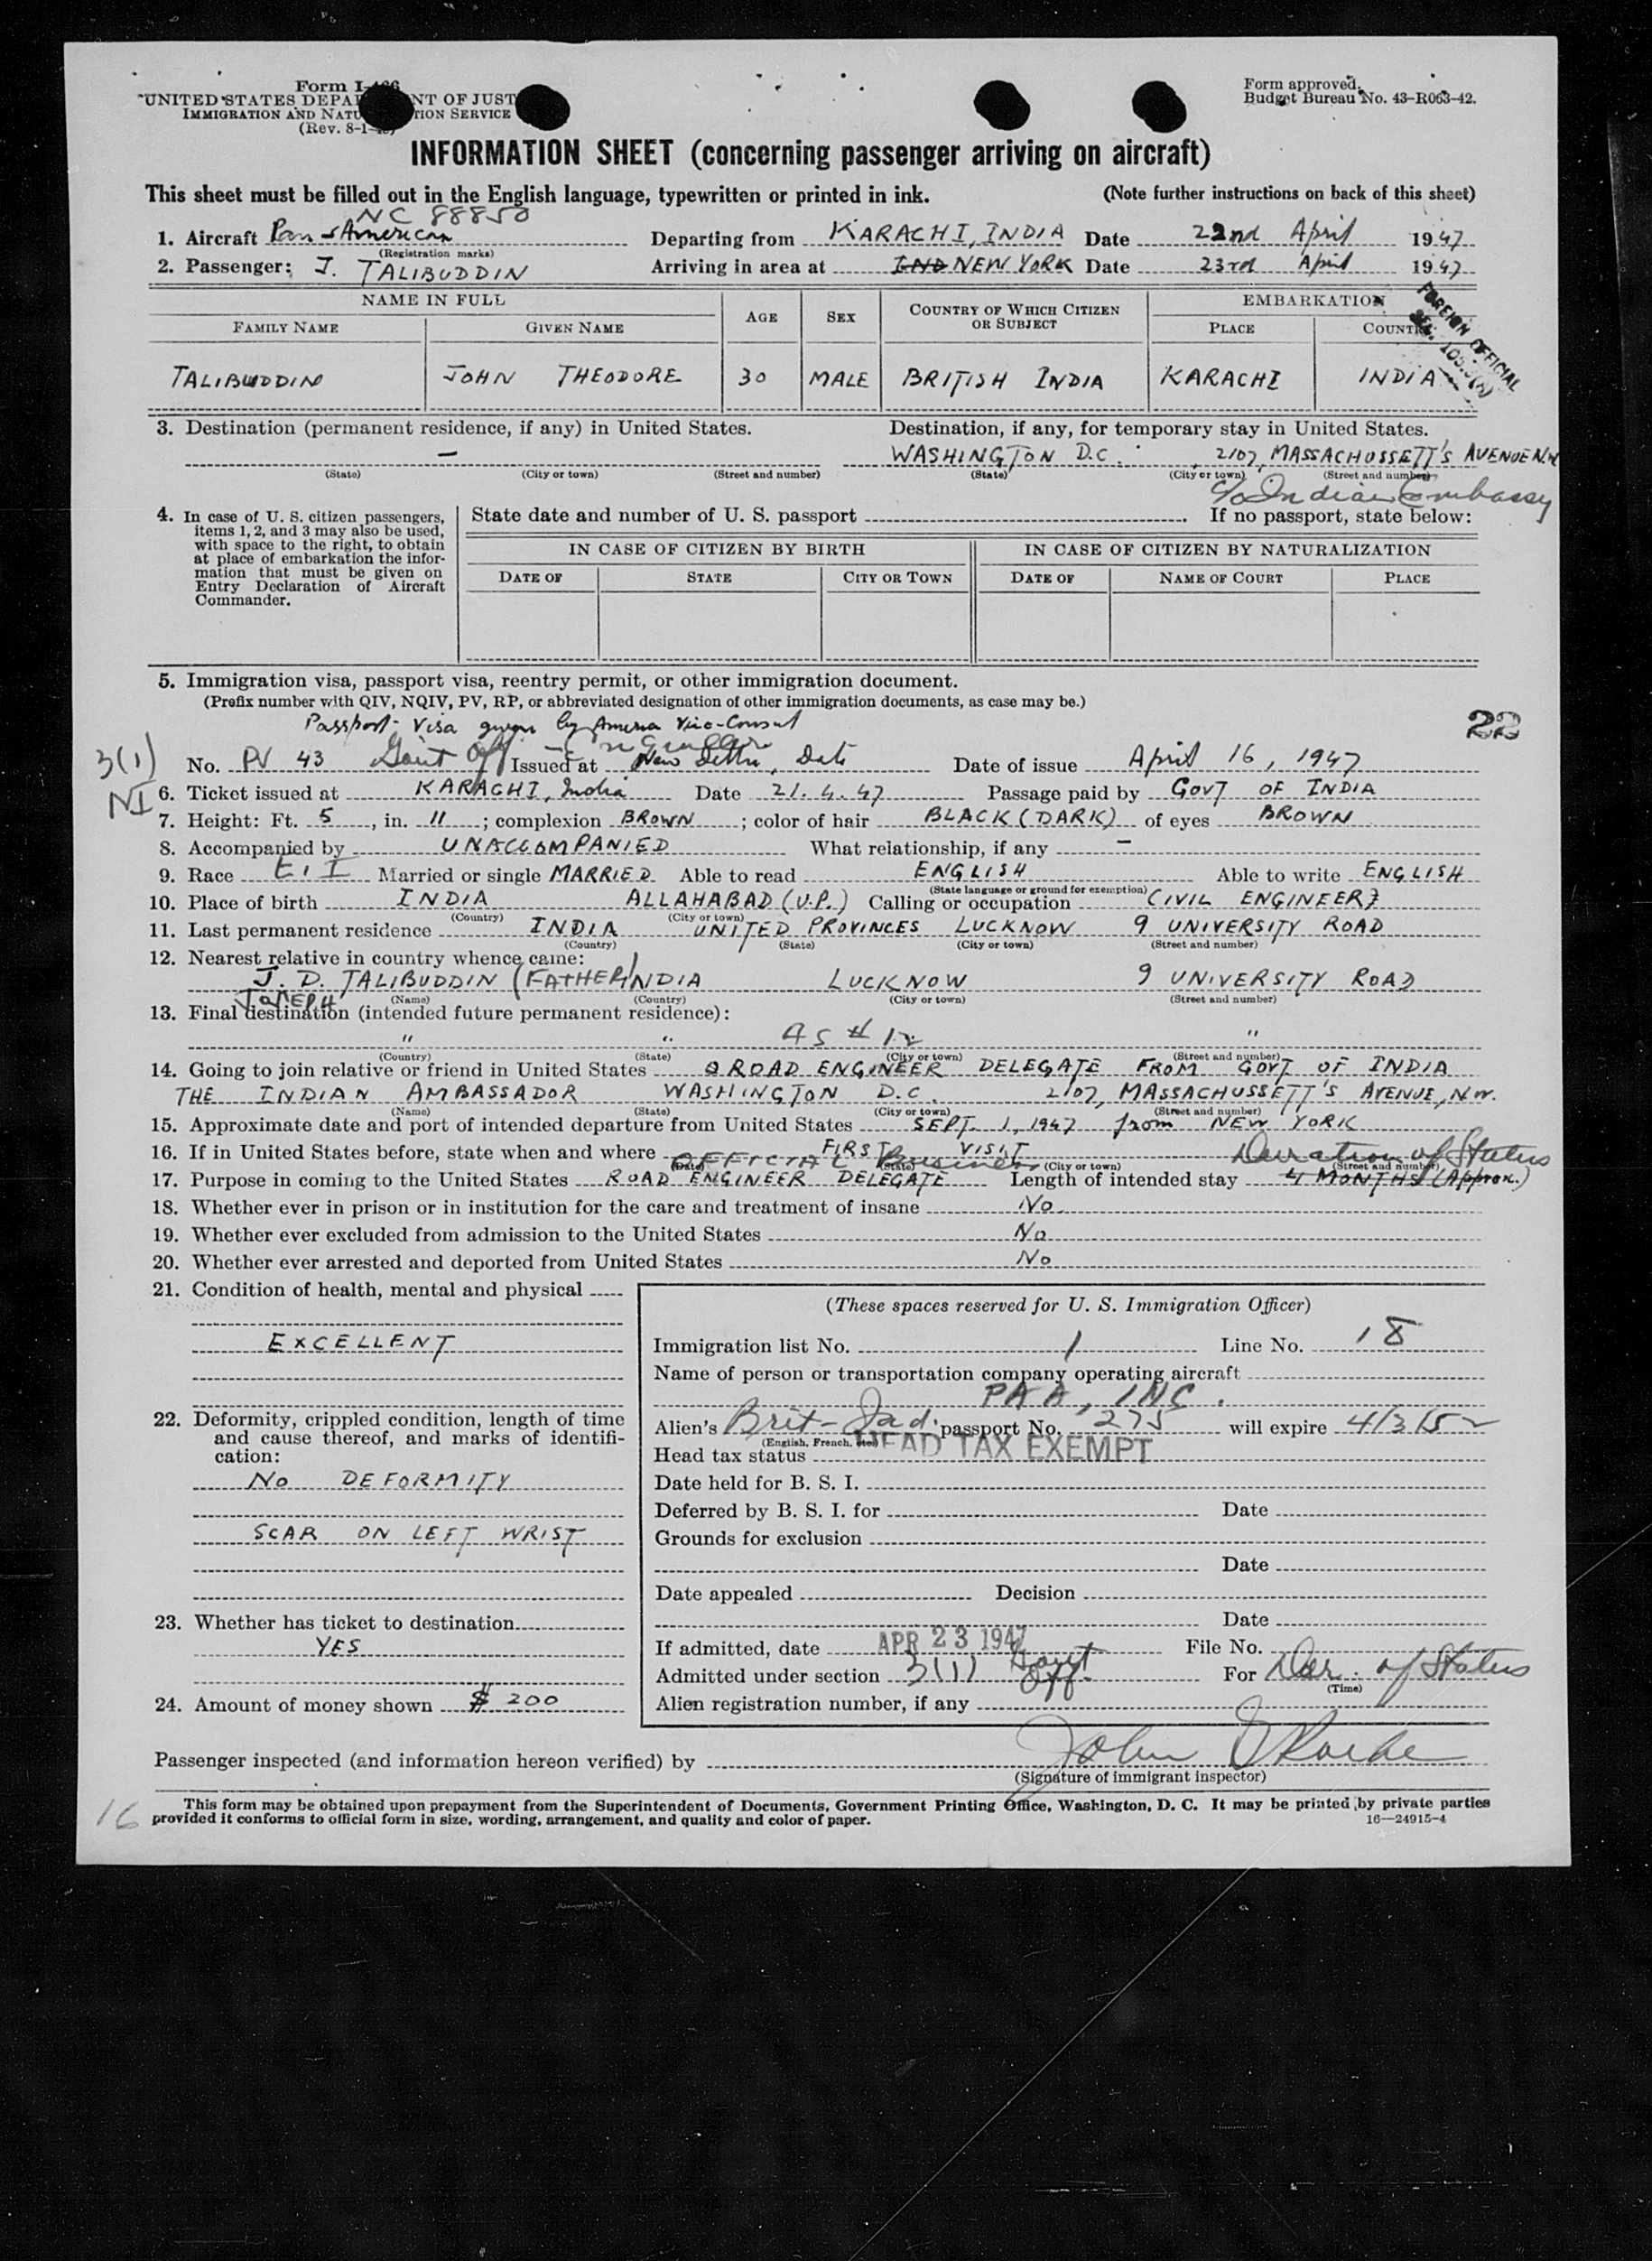 Form I-466
UNITED STATES DEPARTMENT OF JUSTICE
IMMIGRATION AND NATURALIZATION SERVICE
(Rev. 8-1-
Form approved.
Budget Bureau No. 43-R063-42.
INFORMATION SHEET (concerning passenger arriving on aircraft)
This sheet must be filled out in the English language, typewritten or printed in ink. (Note further instructions on back of this sheet)
NC 88850
1. Aircraft Pan American Departing from KARACHI, INDIA Date 22nd April 1947
(Registration marks)
2. Passenger: J. TALIBUDDIN Arriving in area at IND NEW YORK Date 23rd April 1947
NAME IN FULL AGE SEX COUNTRY OF WHICH CITIZEN OR SUBJECT EMBARKATION
FAMILY NAME GIVEN NAME PLACE COUNTRY
FOREIGN OFFICIAL
TALIBUDDIN JOHN THEODORE 30 MALE BRITISH INDIA KARACHI INDIA
3. Destination (permanent residence, if any) in United States. Destination, if any, for temporary stay in United States.
— WASHINGTON D.C. 2107, MASSACHUSSETT'S AVENUE N.W
(State) (City or town) (Street and number) (State) (City or town) (Street and number)
c/o Indian Embassy
4. In case of U. S. citizen passengers, items 1, 2, and 3 may also be used, with space to the right, to obtain at place of embarkation the information that must be given on Entry Declaration of Aircraft Commander.
State date and number of U. S. passport . If no passport, state below:
IN CASE OF CITIZEN BY BIRTH IN CASE OF CITIZEN BY NATURALIZATION
DATE OF STATE CITY OR TOWN DATE OF NAME OF COURT PLACE
5. Immigration visa, passport visa, reentry permit, or other immigration document.
(Prefix number with QIV, NQIV, PV, RP, or abbreviated designation of other immigration documents, as case may be.)
Passport Visa given by America Vice-Consul
22
3(1) No. PV 43 Govt Off Issued at New Delhi, Date Date of issue April 16, 1947
NI 6. Ticket issued at KARACHI, India Date 21.4.47 Passage paid by GOVT OF INDIA
7. Height: Ft. 5, in. 11; complexion BROWN; color of hair BLACK (DARK) of eyes BROWN
8. Accompanied by UNACCOMPANIED What relationship, if any —
9. Race E. I Married or single MARRIED Able to read ENGLISH Able to write ENGLISH
(State language or ground for exemption)
10. Place of birth INDIA ALLAHABAD (U.P.) Calling or occupation CIVIL ENGINEER
(Country) (City or town)
11. Last permanent residence INDIA UNITED PROVINCES LUCKNOW 9 UNIVERSITY ROAD
(Country) (State) (City or town) (Street and number)
12. Nearest relative in country whence came:
J. D. TALIBUDDIN (FATHER) INDIA LUCKNOW 9 UNIVERSITY ROAD
JOSEPH (Name) (Country) (City or town) (Street and number)
13. Final destination (intended future permanent residence):
" " AS # 12 "
(Country) (State) (City or town) (Street and number)
14. Going to join relative or friend in United States ROAD ENGINEER DELEGATE FROM GOVT OF INDIA
THE INDIAN AMBASSADOR WASHINGTON D.C. 2107, MASSACHUSSETT'S AVENUE, N.W.
(Name) (State) (City or town) (Street and number)
15. Approximate date and port of intended departure from United States SEPT. 1, 1947 from NEW YORK
16. If in United States before, state when and where FIRST VISIT
(Date) (State) (City or town) (Street and number)
OFFICIAL Business Duration of Status
17. Purpose in coming to the United States ROAD ENGINEER DELEGATE Length of intended stay 4 MONTHS (Approx.)
18. Whether ever in prison or in institution for the care and treatment of insane No
19. Whether ever excluded from admission to the United States No
20. Whether ever arrested and deported from United States No
21. Condition of health, mental and physical
EXCELLENT
22. Deformity, crippled condition, length of time and cause thereof, and marks of identification:
NO DEFORMITY
SCAR ON LEFT WRIST
23. Whether has ticket to destination
YES
24. Amount of money shown $ 200
(These spaces reserved for U. S. Immigration Officer)
Immigration list No. 1 Line No. 18
Name of person or transportation company operating aircraft
PAA, INC.
Alien's Brit-Ind. passport No. 275 will expire 4/3/52
(English, French, etc.)
Head tax status HEAD TAX EXEMPT
Date held for B. S. I.
Deferred by B. S. I. for Date
Grounds for exclusion
Date
Date appealed Decision
Date
If admitted, date APR 23 1947 File No.
Admitted under section 3(1) Govt Off. For Dur. of Status
(Time)
Alien registration number, if any
Passenger inspected (and information hereon verified) by John
(Signature of immigrant inspector)
16
This form may be obtained upon prepayment from the Superintendent of Documents, Government Printing Office, Washington, D. C. It may be printed by private parties
provided it conforms to official form in size, wording, arrangement, and quality and color of paper. 16—24915-4